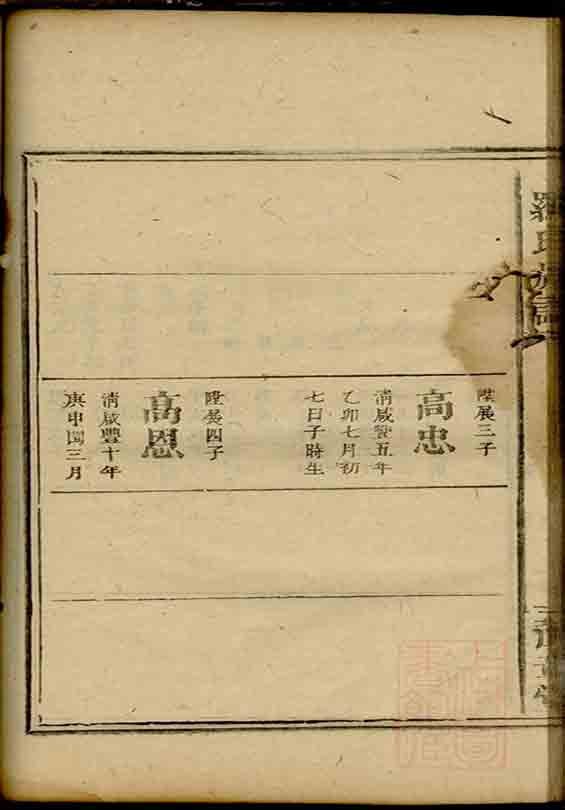 羅氏族譜
陞展三子
高忠
清咸豐五年
乙卯七月初
七日子時生
陞展四子
高恩
清咸豐十年
庚申閏三月